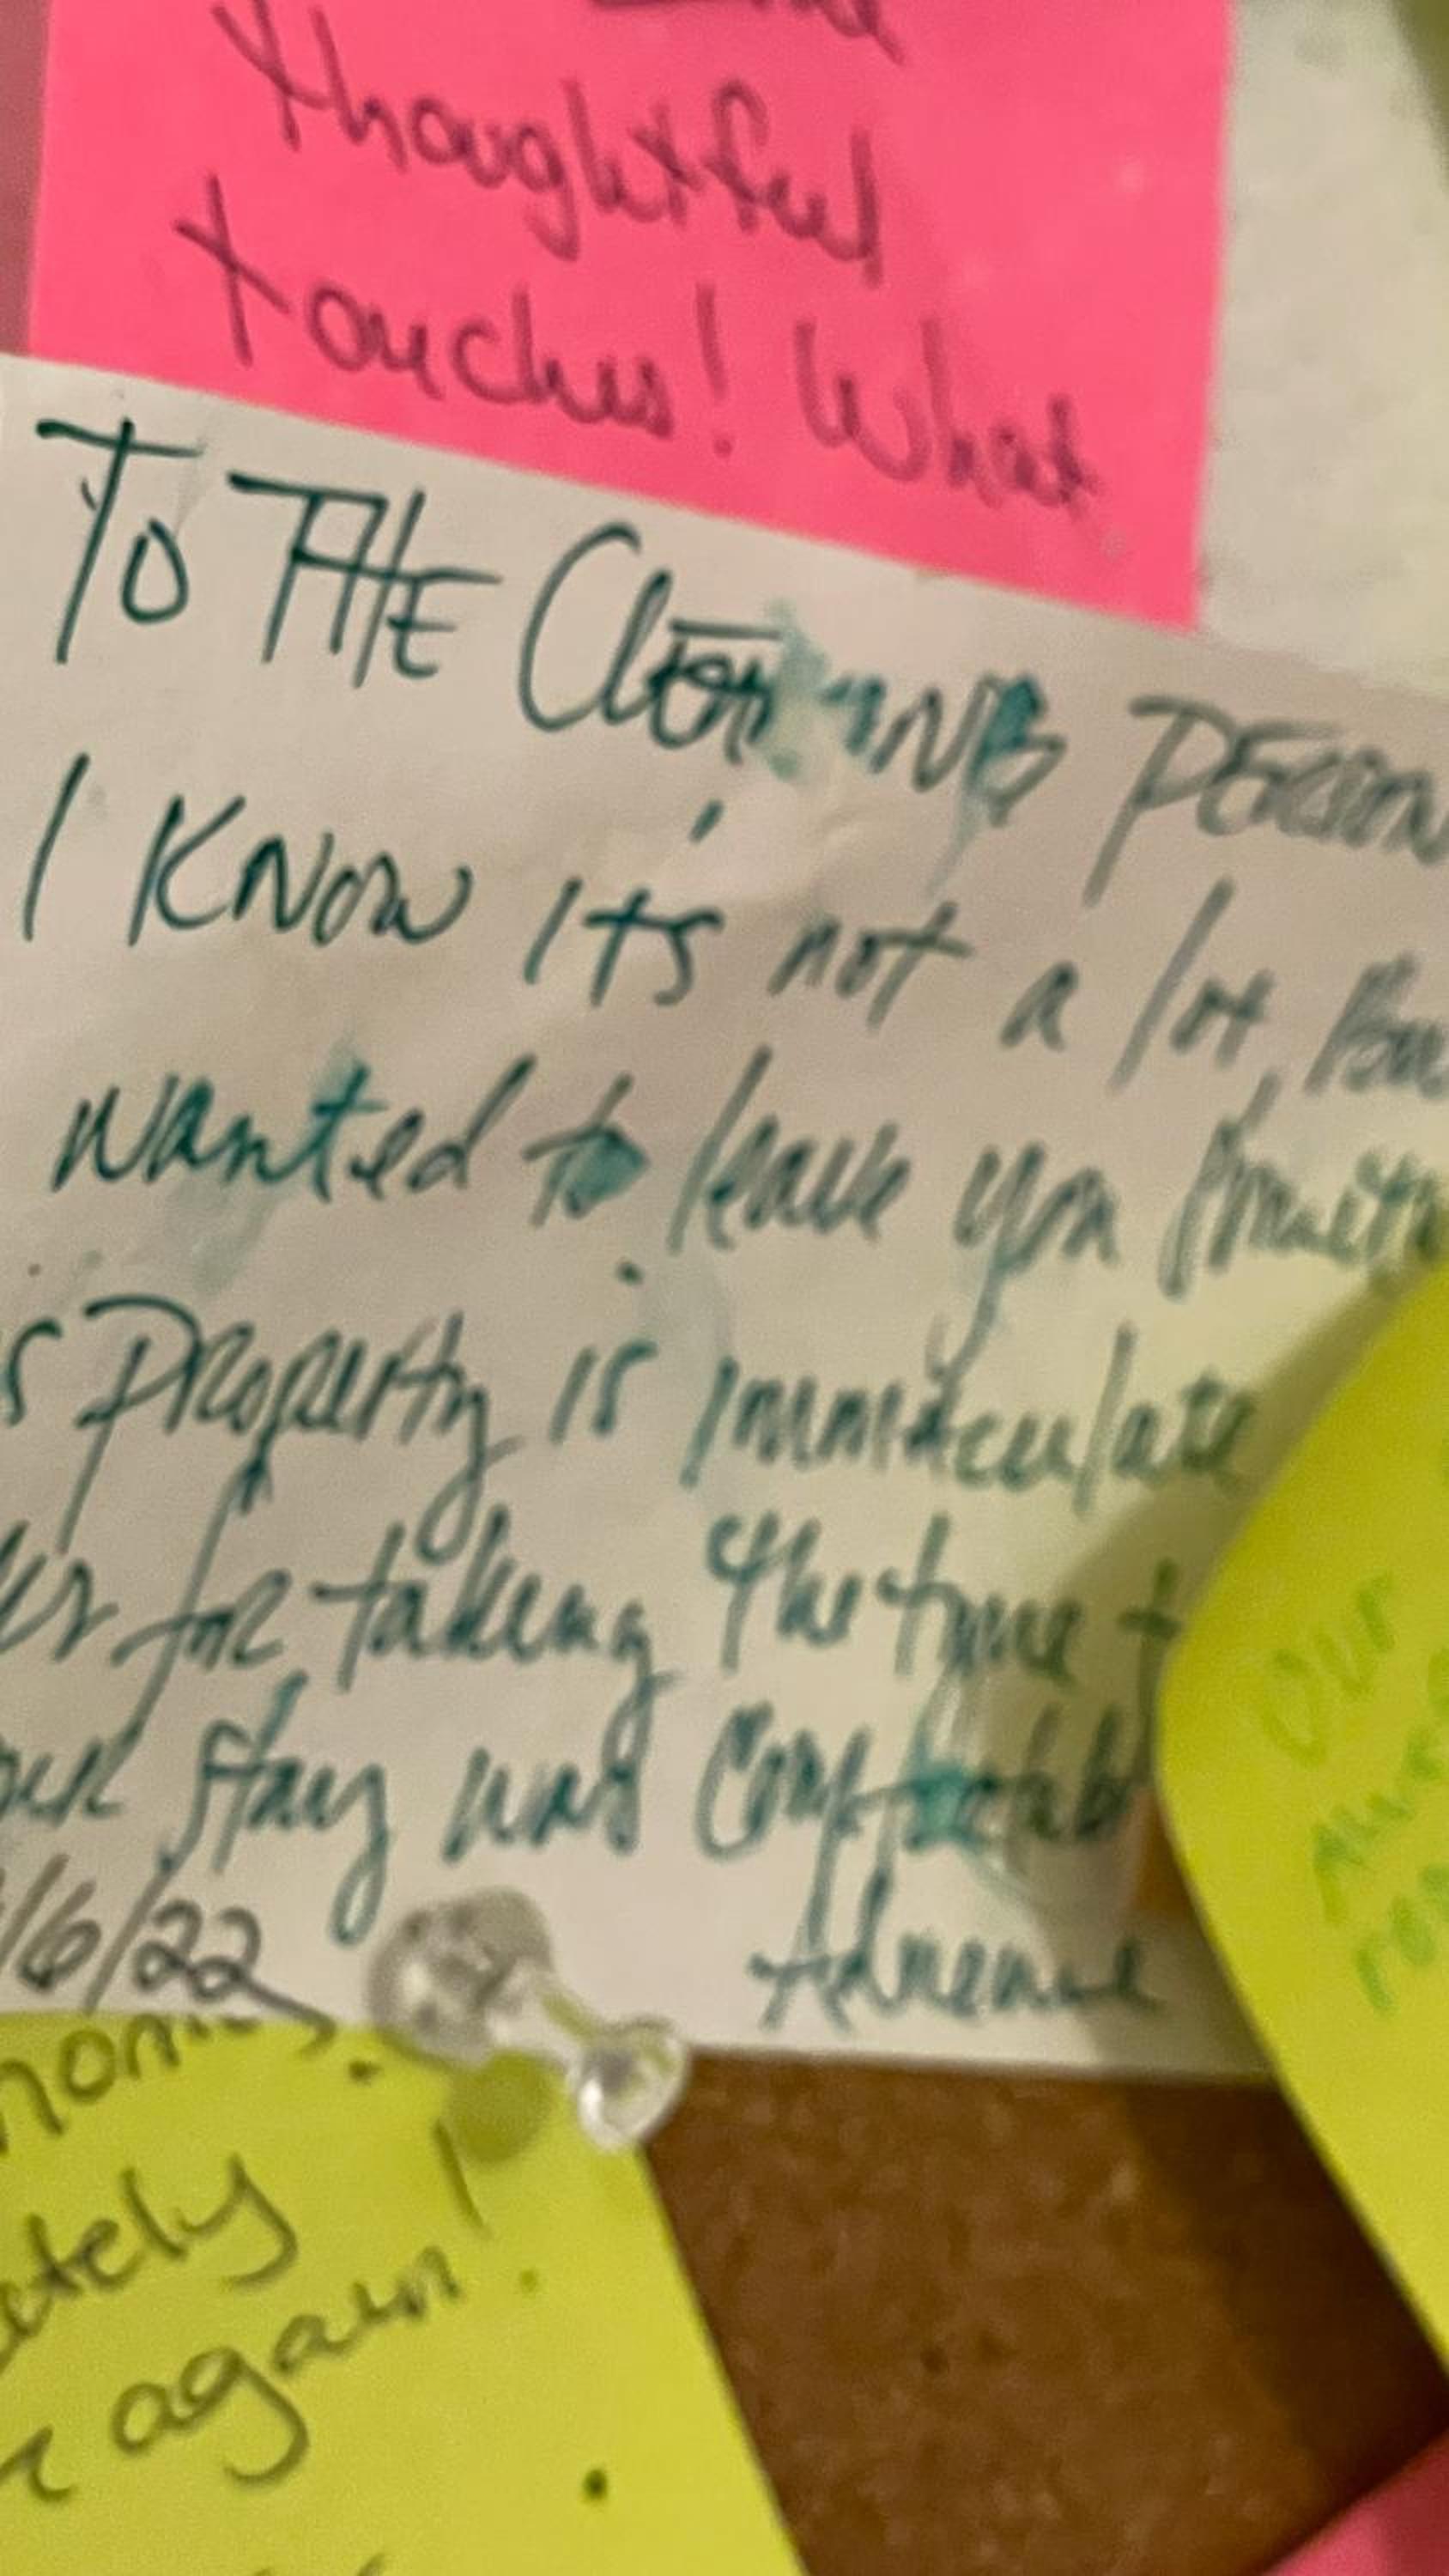 thoughtful
touches! What
TO THE Cleaning PERSON
I KNOW it's not a lot, But
wanted to leave you
s Property is immaculate
for taking the time t
stay was Comfortabl
/6/22
Adrienne
tely
again!
our